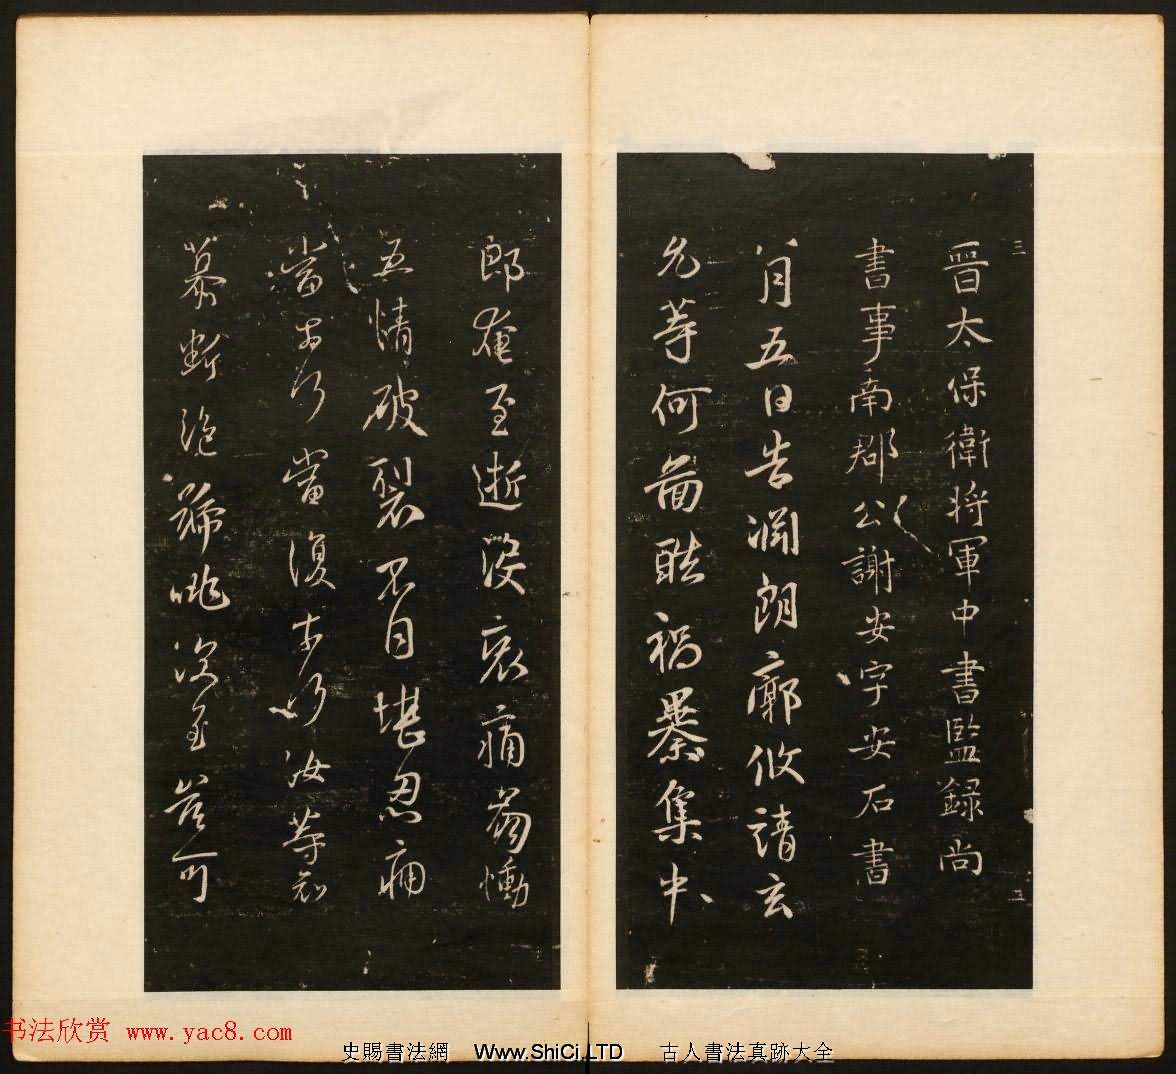 三
晉太保衛將軍中書監録尚
書事南郡公謝安字安石書
三
八月五日告淵朗廓攸靖玄
允等何圖酷禍暴集中
郎奄至逝没哀痛崩慟
五情破裂不自堪忍痛
當奈何當復奈何汝等
慕斷絶號咷次至豈可
书法欣赏 www.yac8.com
史賜書法網 Www.ShiCi.LTD 古人書法真跡大全